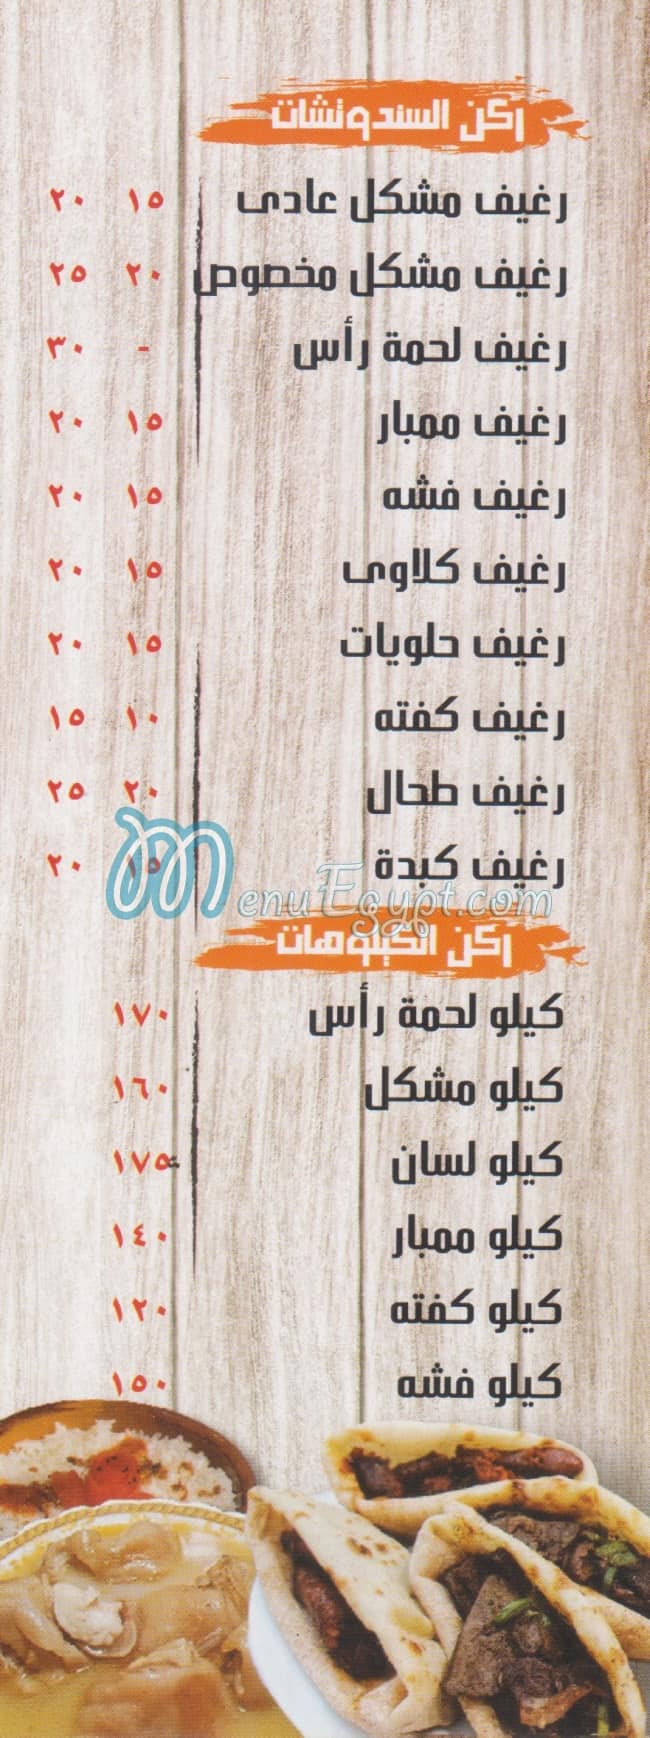 ركن السندوتشات
رغيف مشكل عادى ١٥ ٢٠
رغيف مشكل مخصوص ٢٠ ٢٥
رغيف لحمة رأس - ٣٠
رغيف ممبار ١٥ ٢٠
رغيف فشه ١٥ ٢٠
رغيف كلاوى ١٥ ٢٠
رغيف حلويات ١٥ ٢٠
رغيف كفته ١٠ ١٥
رغيف طحال ٢٠ ٢٥
رغيف كبدة ١٥ ٢٠
MenuEgypt.com
ركن الكيلوهات
كيلو لحمة رأس ١٧٠
كيلو مشكل ١٦٠
كيلو لسان ١٧٥
كيلو ممبار ١٤٠
كيلو كفته ١٢٠
كيلو فشه ١٥٠